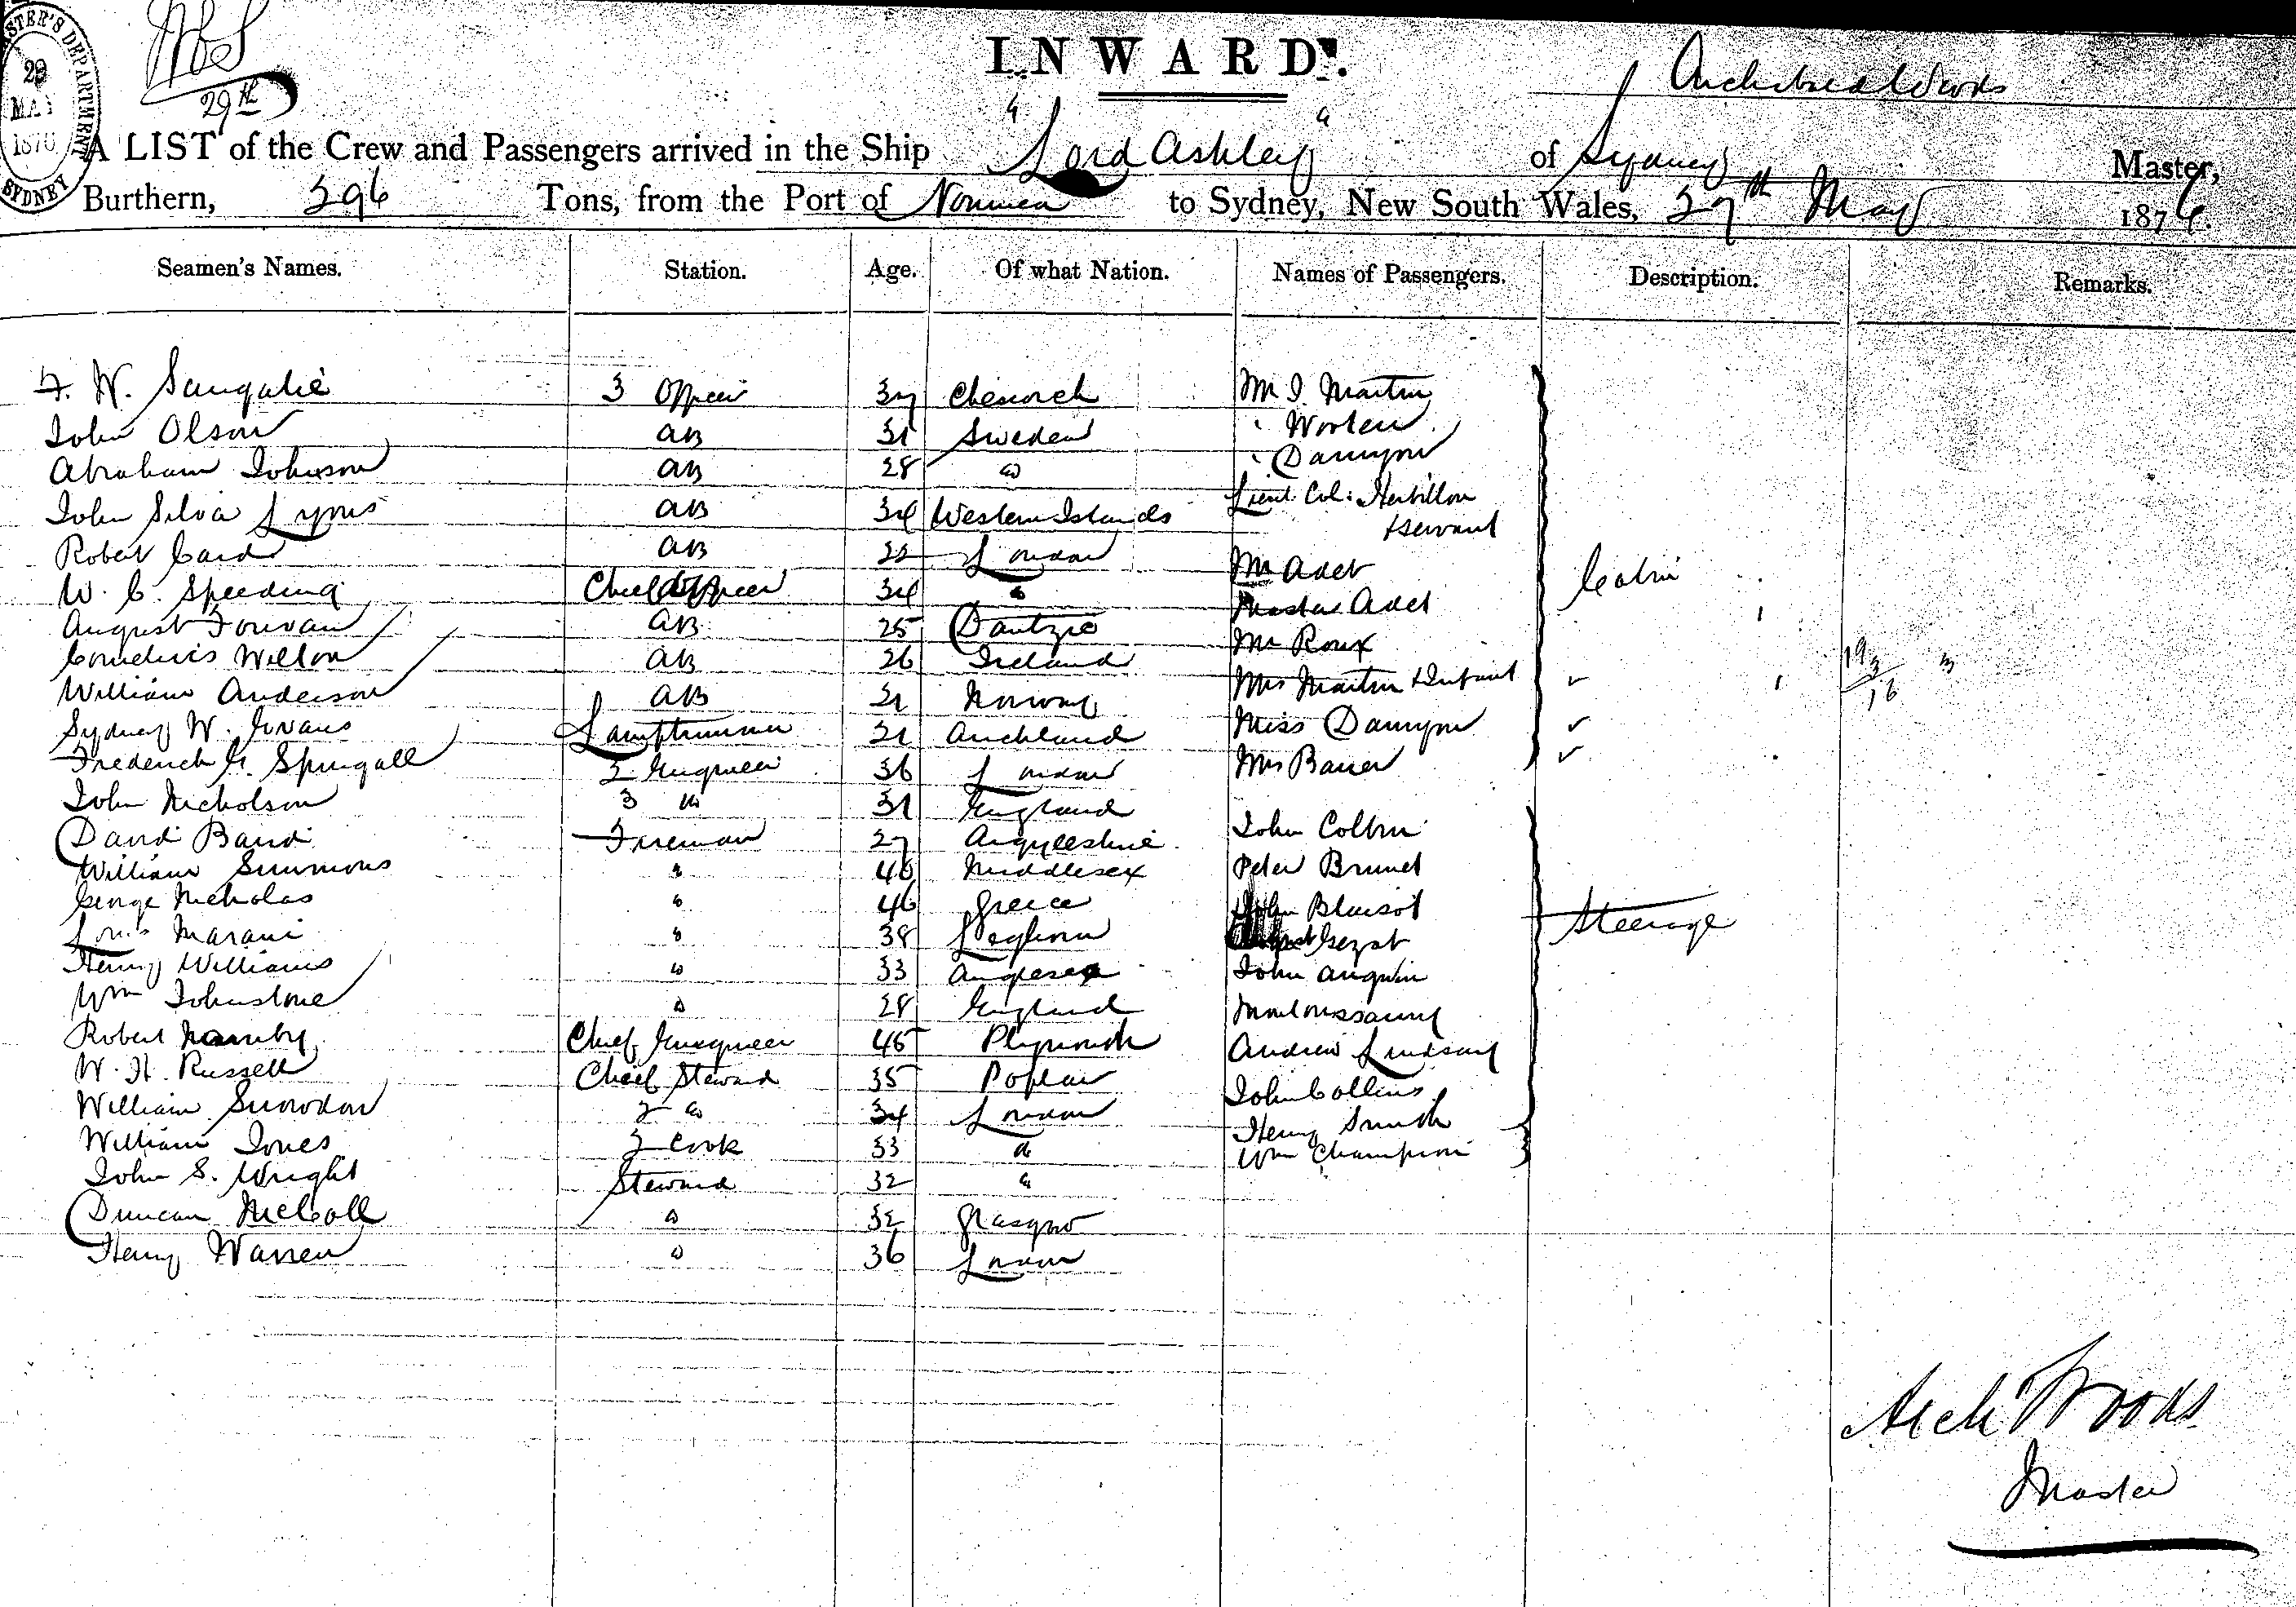 INWARD.
29th
29 MAY 1876 SYDNEY
Archibald Woods
A LIST of the Crew and Passengers arrived in the Ship "Lord Ashley" of Sydney Master,
Burthern, 296 Tons, from the Port of Noumea to Sydney, New South Wales, 27th May 1876.
Seamen's Names. Station. Age. Of what Nation. Names of Passengers. Description. Remarks.
3 Officer 37 Mr J. Martin
John Olson AB 31 Sweden
Abraham Johnson AB 28 "
John Silva Lyons AB 34 Western Islands Lieut. Col: Herbillon
& servant
Robert Card AB 22 London Mr Adet Cabin
W. C. Speeding Chief Officer 34 " Master Adet
August AB 25 Dantzic Mr Roux
Cornelius Wilton AB 26 Ireland Mrs Martin & Infant
William Anderson AB 21 Norway Miss
Sydney W. Evans Lamptrimmer 21 Auckland Mrs Bauer
Frederick G. Springall 2 Engineer 36 London
John Nicholson 3 " 31 England John
David Baird Fireman 27 Argyleshire Peter Brunet
William Simmons " 40 Middlesex John Blaisot
George Nicholas " 46 Greece Steerage
Louis Marani " 38 Leghorn John Anquin
Henry Williams " 33 Anglesea
Wm Johnstone " 28 England Andrew Lindsay
Robert Chief Engineer 45 Plymouth John Collins
W. H. Russell Chief Steward 35 Poplar Henry Smith
William Snowdon 2 " 34 London Wm Champion
William Jones 2 Cook 33 "
John S. Wright Steward 32 "
Duncan McColl " 32 Glasgow
Henry Warren " 36 London
Arch Woods
Master